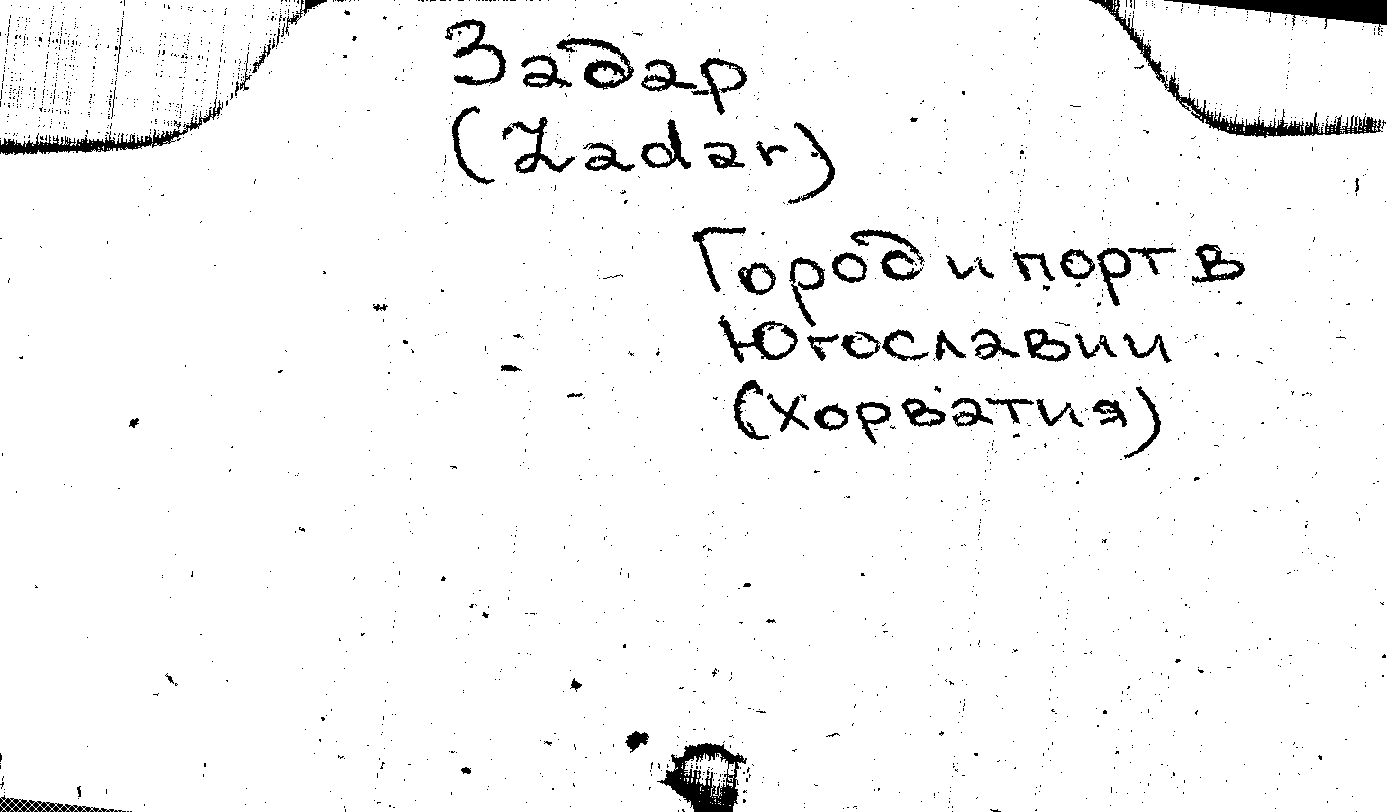 Задар
(Zadar)
Город и порт в
Югославии
(Хорватия)